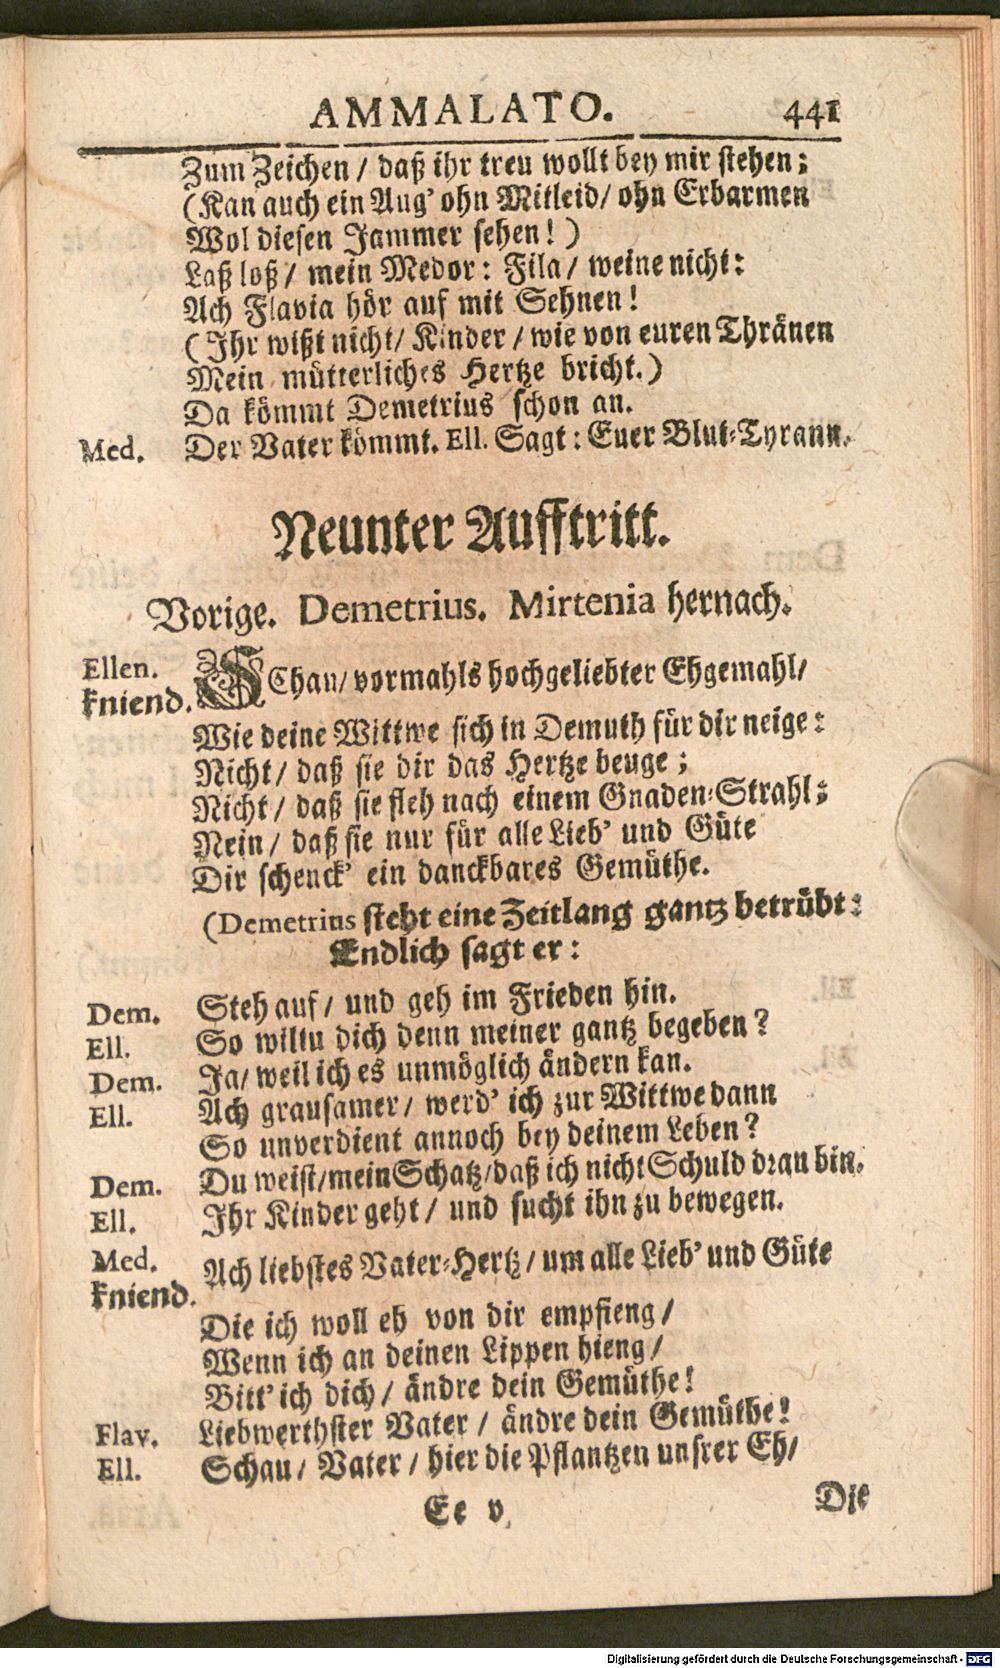 AMMALATO. 441
Zum Zeichen / daß ihr treu wollt bey mir stehen;
(Kan auch ein Aug' ohn Mitleid / ohn Erbarmen
Wol diesen Jammer sehen! )
Laß loß / mein Medor: Fila / weine nicht:
Ach Flavia hör auf mit Sehnen!
( Ihr wißt nicht / Kinder / wie von euren Thränen
Mein mütterliches Hertze bricht.)
Da kömmt Demetrius schon an.
Med. Der Vater kömmt. Ell. Sagt: Euer Blut-Tyrann.
Neunter Aufftritt.
Vorige. Demetrius. Mirtenia hernach.
Ellen. kniend. SChau / vormahls hochgeliebter Ehgemahl /
Wie deine Wittwe sich in Demuth für dir neige:
Nicht / daß sie dir das Hertze beuge;
Nicht / daß sie fleh nach einem Gnaden-Strahl;
Nein / daß sie nur für alle Lieb' und Güte
Dir schenck' ein danckbares Gemüthe.
(Demetrius steht eine Zeitlang gantz betrübt:
Endlich sagt er:
Dem. Steh auf / und geh im Frieden hin.
Ell. So willtu dich denn meiner gantz begeben?
Dem. Ja / weil ich es unmöglich ändern kan.
Ell. Ach grausamer / werd' ich zur Wittwe dann
So unverdient annoch bey deinem Leben?
Dem. Du weist / mein Schatz / daß ich nicht Schuld dran bin.
Ell. Ihr Kinder geht / und sucht ihn zu bewegen.
Med. kniend. Ach liebstes Vater-Hertz / um alle Lieb' und Güte
Die ich woll eh von dir empfieng /
Wenn ich an deinen Lippen hieng /
Bitt' ich dich / ändre dein Gemüthe!
Flav. Liebwerthster Vater / ändre dein Gemüthe!
Ell. Schau / Vater / hier die Pflantzen unsrer Eh /
Ee v Die
Digitalisierung gefördert durch die Deutsche Forschungsgemeinschaft - DFG